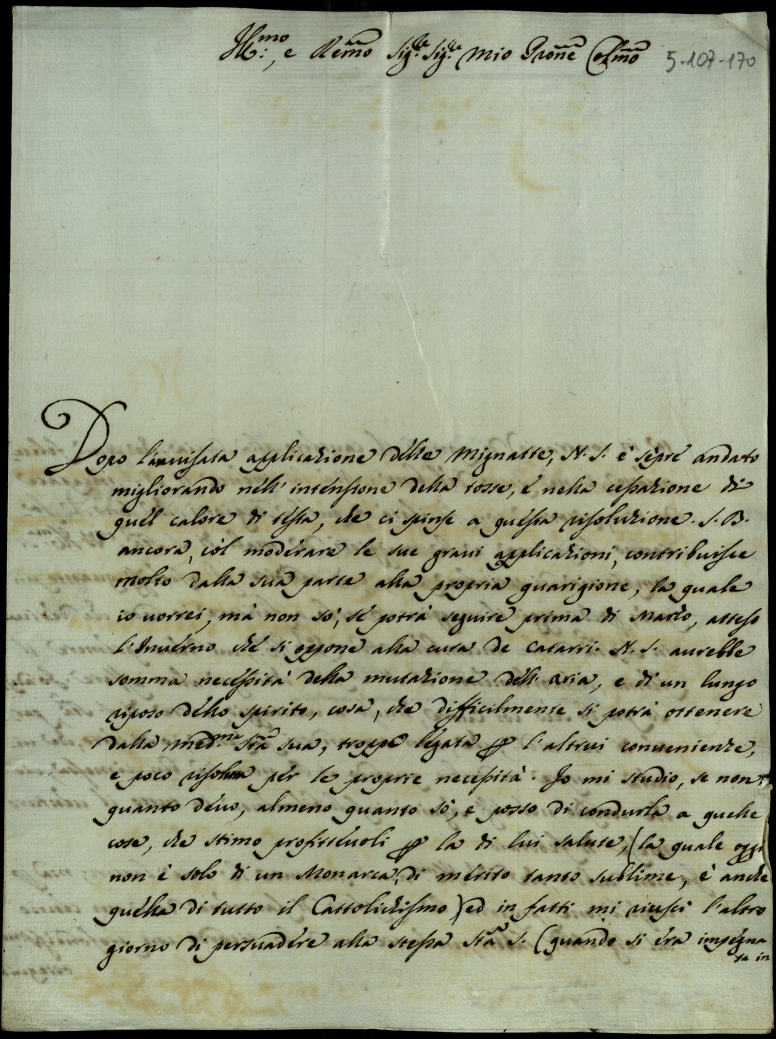 Ill:mo, e Rẽmo Sig:re Sig:re mio Prõne Colmo 5-107-170
Dopo l'avvisata applicazione delle Mignatte, N. S. è sẽpre andato
migliorando nell'intensione della tosse, e nella cessazione di
quel calore di testa, che ci spinse a questa risoluzione. S. B.
ancora, col moderare le sue gravi applicazioni, contribuisce
molto dalla sua parte alla propria guarigione, la quale
io vorrei, mà non sò, se potrà seguire prima di Marzo, atteso
l'Inverno che si oppone alla cura de Catarri. N. S. avrebbe
somma necessità della mutazione dell'aria, e di un lungo
riposo dello spirito, cosa, che difficilmente si potrà ottenere
dalla med:ma Stà sua, troppo legata p l'altrui convenienze,
e poco risoluta per le proprie necessità. Io mi studio, se non
quanto devo, almeno quanto sò, e posso di condurla a quelle
cose, che stimo profittevoli p la di lui salute, (la quale oggi
non è solo di un Monarca, di merito tanto sublime, è anche
quella di tutto il Cattolichismo) ed in fatti mi riuscì l'altro
giorno di persuadere alla stessa Stà S. (quando si era impegna
ta in